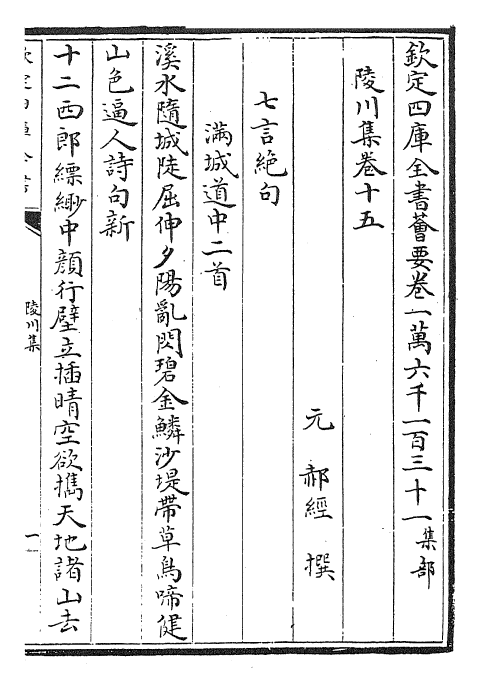 欽定四庫全書薈要卷一萬六千一百三十一集部
陵川集卷十五
元 郝經 撰
七言絶句
滿城道中二首
溪水隨城陡屈伸夕陽亂閃碧金鱗沙堤帶草鳥啼健
山色逼人詩句新
十二西郎縹緲中顔行壁立插晴空欲攜天地諸山去
陵川集
一